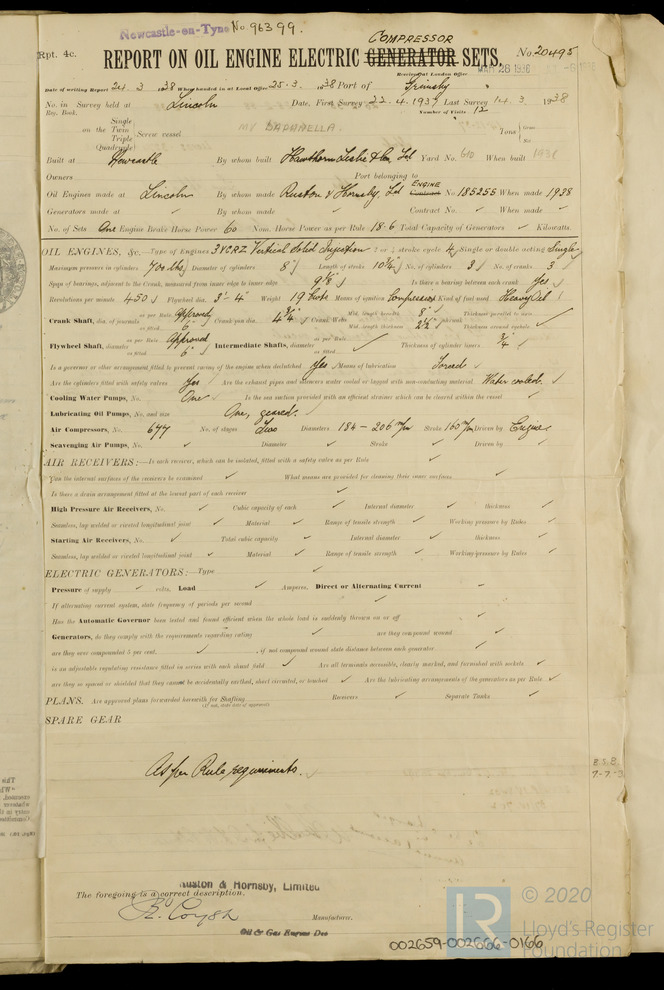 Newcastle-on-Tyne No. 96399.
COMPRESSOR
Rpt. 4c. REPORT ON OIL ENGINE ELECTRIC GENERATOR SETS. No. 20495
Received at London Office
Date of writing Report 24.3.1938 When handed in at Local Office 25.3.1938 Port of Grimsby
No. in Survey held at Lincoln Date, First Survey 22.4.1937 Last Survey 14.3.1938
Reg. Book. Number of Visits 12
on the Single Twin Triple Quadruple Screw vessel MV DAPHNELLA Tons Gross Net
Built at Newcastle By whom built Hawthorn Leslie & Co Ltd Yard No. 610 When built
Owners Port belonging to
Oil Engines made at Lincoln By whom made Ruston & Hornsby Ltd ENGINE Contract No. 185255 When made 1938
Generators made at ✓ By whom made ✓ Contract No. ✓ When made ✓
No. of Sets One Engine Brake Horse Power 60 Nom. Horse Power as per Rule 18.6 Total Capacity of Generators ✓ Kilowatts.
OIL ENGINES, &c.—Type of Engines 3VCRZ Vertical Solid Injection 2 or 4 stroke cycle 4 Single or double acting Single
Maximum pressure in cylinders 700 lbs Diameter of cylinders 8" Length of stroke 10¾" No. of cylinders 3 No. of cranks 3
Span of bearings, adjacent to the Crank, measured from inner edge to inner edge 9⅛" Is there a bearing between each crank Yes
Revolutions per minute 450 Flywheel dia. 3'-4" Weight 19 Cwts Means of ignition Compression Kind of fuel used Heavy Oil
Crank Shaft, dia. of journals as per Rule Approved as fitted 6" Crank pin dia. 4¾" Crank Webs Mid. length breadth 8" Mid. length thickness 2½" Thickness parallel to axis Thickness around eyehole
Flywheel Shaft, diameter as per Rule Approved as fitted 6" Intermediate Shafts, diameter as per Rule as fitted Thickness of cylinder liners ¾"
Is a governor or other arrangement fitted to prevent racing of the engine when declutched Yes Means of lubrication Forced
Are the cylinders fitted with safety valves Yes Are the exhaust pipes and silencers water cooled or lagged with non-conducting material Water cooled.
Cooling Water Pumps, No. One Is the sea suction provided with an efficient strainer which can be cleared within the vessel ✓
Lubricating Oil Pumps, No. and size One, geared.
Air Compressors, No. 677 No. of stages Two Diameters 184 – 206 m/m Stroke 160 m/m Driven by Engine
Scavenging Air Pumps, No. ✓ Diameter ✓ Stroke ✓ Driven by ✓
AIR RECEIVERS:—Is each receiver, which can be isolated, fitted with a safety valve as per Rule ✓
Can the internal surfaces of the receivers be examined ✓ What means are provided for cleaning their inner surfaces ✓
Is there a drain arrangement fitted at the lowest part of each receiver ✓
High Pressure Air Receivers, No. ✓ Cubic capacity of each ✓ Internal diameter ✓ thickness ✓
Seamless, lap welded or riveted longitudinal joint ✓ Material ✓ Range of tensile strength ✓ Working pressure by Rules ✓
Starting Air Receivers, No. ✓ Total cubic capacity ✓ Internal diameter ✓ thickness ✓
Seamless, lap welded or riveted longitudinal joint ✓ Material ✓ Range of tensile strength ✓ Working pressure by Rules ✓
ELECTRIC GENERATORS:—Type ✓
Pressure of supply ✓ volts. Load ✓ Amperes. Direct or Alternating Current ✓
If alternating current system, state frequency of periods per second ✓
Has the Automatic Governor been tested and found efficient when the whole load is suddenly thrown on or off ✓
Generators, do they comply with the requirements regarding rating ✓ are they compound wound ✓
are they over compounded 5 per cent. ✓ , if not compound wound state distance between each generator ✓
is an adjustable regulating resistance fitted in series with each shunt field ✓ Are all terminals accessible, clearly marked, and furnished with sockets ✓
are they so spaced or shielded that they cannot be accidentally earthed, short circuited, or touched ✓ Are the lubricating arrangements of the generators as per Rule ✓
PLANS. Are approved plans forwarded herewith for Shafting ✓ Receivers ✓ Separate Tanks ✓
(If not, state date of approval)
SPARE GEAR
As per Rule requirements.
Ruston & Hornsby, Limited
The foregoing is a correct description.
Manufacturer.
Oil & Gas Engine Dept
© 2020
LR
Lloyd's Register
Foundation
002659-002666-0166